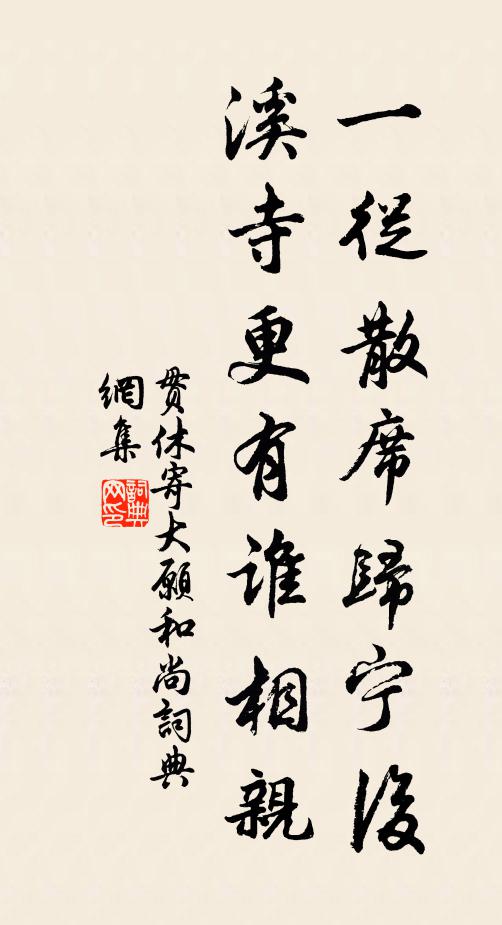 一從散席歸宁後
溪寺更有誰相親
貫休寄大願和尚詞典
網集
詞典
网印